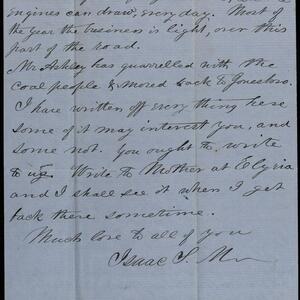 engines can draw, every day. Most of
the year the business is light, over this
part of the road.
Mr Ashley has quarrelled with the
coal people & moved back to Jonesboro.
I have written off everything here
some of it may interest you, and
some not. You ought to, write
to us. Write to Mother at Elyria
and I shall see it when I get
back there sometime.
Much love to all of you
Isaac S.